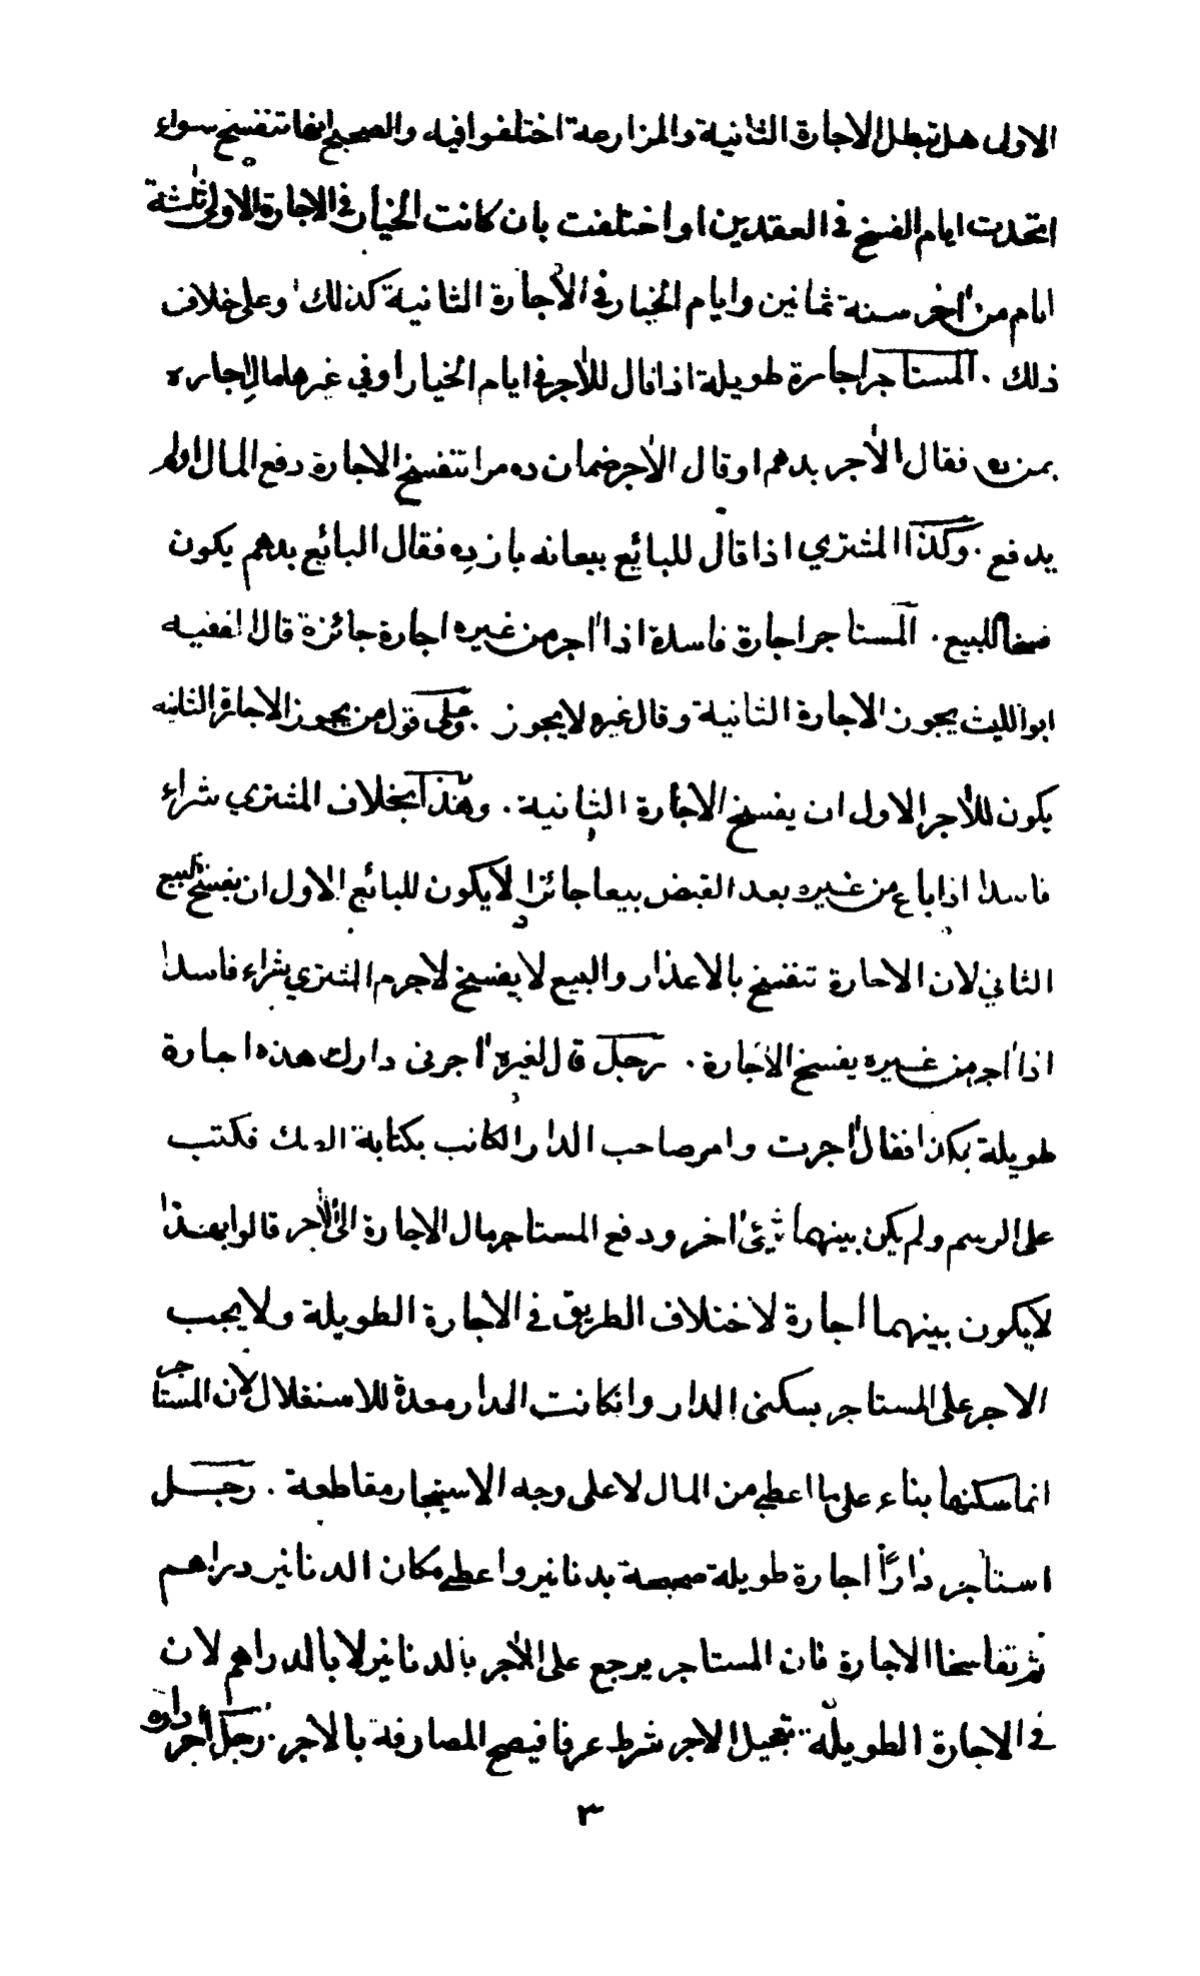 الاولى هل تبطل الاجارة الثانية والمزارعة اختلفوا فيه والصحيح انها تنفسخ سواء
اتحدت ايام الفسخ في العقدين او اختلفت بان كانت الخيار في الاجارة الاولى ثلثة
ايام من اخر سنة ثمانين وايام الخيار في الاجارة الثانية كذلك وعلى خلاف
ذلك . المستاجر اجارة طويلة اذا قال للآجر في ايام الخيار او في غيرها مال اجاره
بمن ده فقال الآجر بدهم او قال الآجر ضمان ده مرا تنفسخ الاجارة دفع المال اولم
يدفع . وكذا المشتري اذا قال للبائع بيعانه باز ده فقال البائع بدهم يكون
فسخا للبيع . المستاجر اجارة فاسدة اذا اجر من غيره اجارة جائزة قال الفقيه
ابو الليث يجوز الاجارة الثانية وقال غيره لا يجوز . وعلى قول من يجوز الاجارة الثانية
يكون للآجر الاول ان يفسخ الاجارة الثانية . وهذا بخلاف المشتري شراء
فاسدا اذا باع من غيره بعد القبض بيعا جائزا لا يكون للبائع الاول ان يفسخ البيع
الثاني لان الاجارة تنفسخ بالاعذار والبيع لا يفسخ لاجرم المشتري شراء فاسدا
اذا اجر من غيره يفسخ الاجارة . رجل قال لغيره اجرنى دارك هذه اجارة
طويلة بكذا فقال اجرت وامر صاحب الدار الكاتب بكتابة الصك فكتب
على الرسم ولم يكن بينهما شيئ اخر ودفع المستاجر مال الاجارة الى الآجر قالوا بهذا
لا يكون بينهما اجارة لاختلاف الطريق في الاجارة الطويلة ولا يجب
الاجر على المستاجر بسكنى الدار وانكانت الدار معدة للاستغلال لان المستاجر
انما سكنها بناء على ما اعطى من المال لا على وجه الاستيجار مقاطعة . رجل
استاجر دارًا اجارة طويلة صحيحة بدنانير واعطى مكان الدنانير دراهم
ثم تفاسخا الاجارة فان المستاجر يرجع على الآجر بالدنانير لا بالدراهم لان
في الاجارة الطويلة تعجيل الاجر شرط عرفا فيصح المصارفة بالاجر . رجل اجر داره
٣